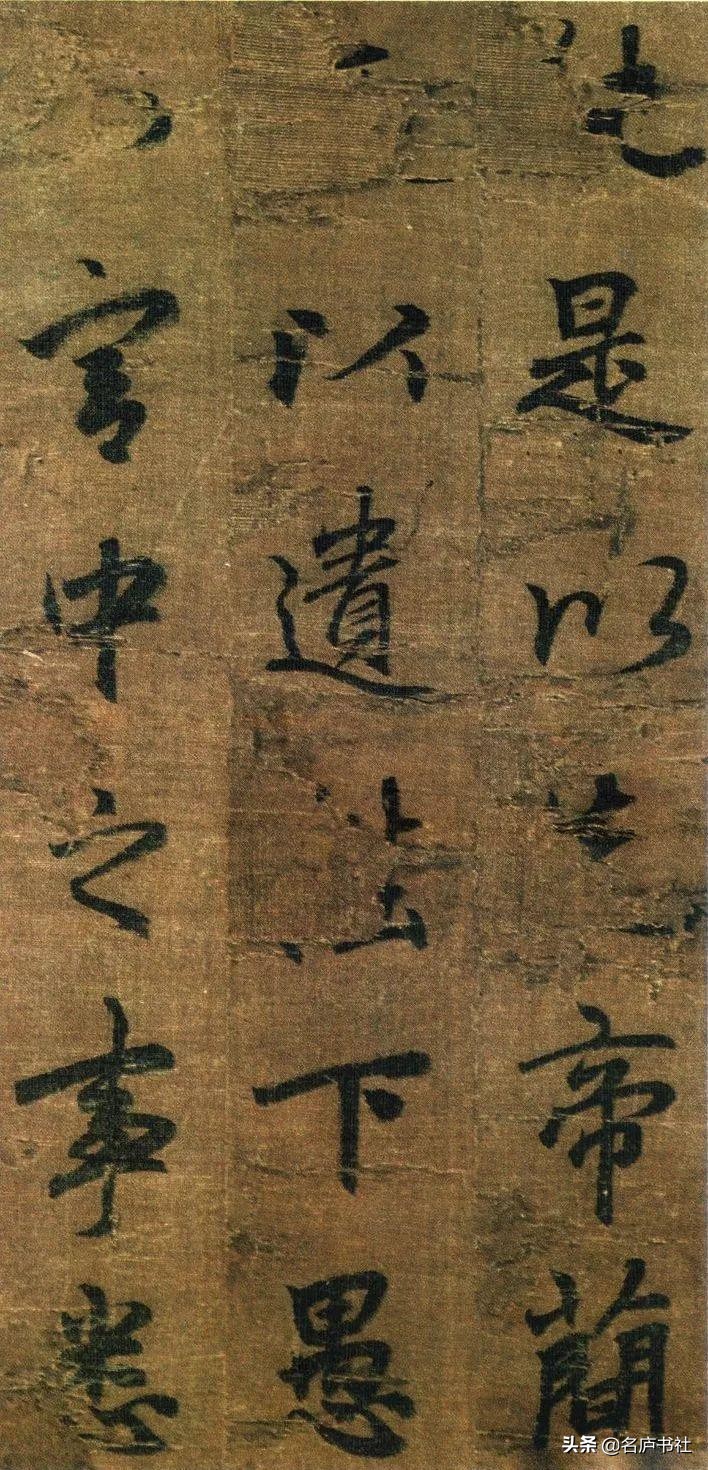 是以帝簡
以遺陛下愚
宮中之事悉
头条 @名庐书社